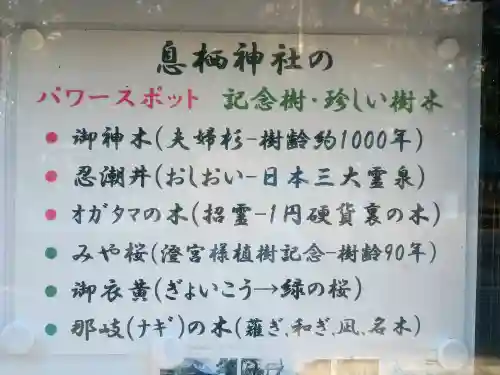 息栖神社の
パワースポット 記念樹・珍しい樹木
● 御神木(夫婦杉-樹齢約1000年)
● 忍潮井(おしおい-日本三大霊泉)
● オガタマの木(招霊-1円硬貨裏の木)
● みや桜(澄宮様植樹記念-樹齢90年)
● 御衣黄(ぎょいこう→緑の桜)
● 那岐(ナギ)の木(薙ぎ、和ぎ、凪、名木)